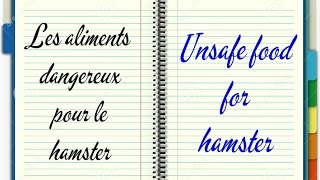 Les aliments
dangereux
pour le
hamster
Unsafe food
for
hamster